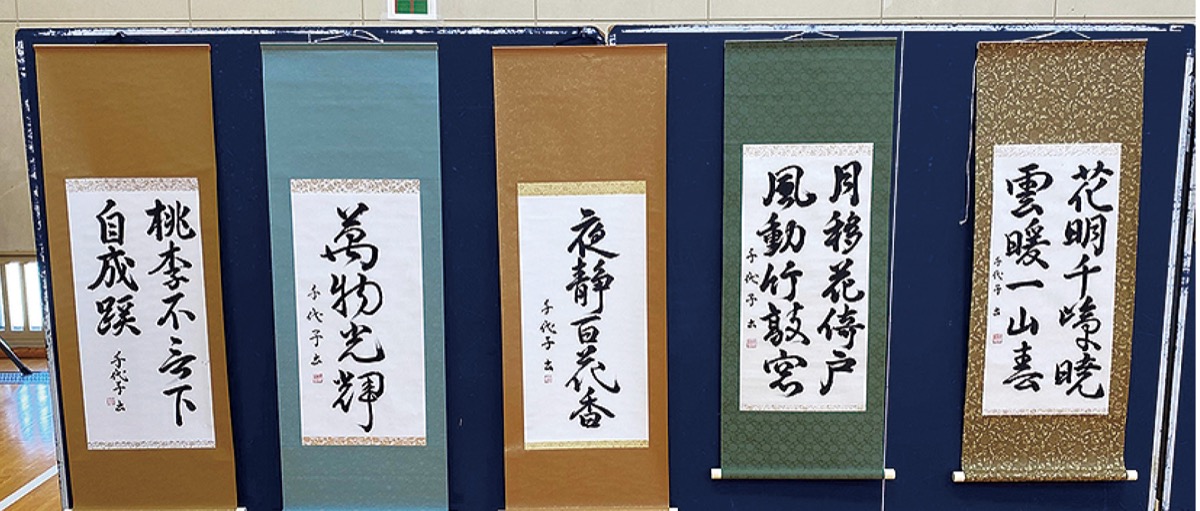 花明千嶂暁
雲暖一山春
千代子書
月移花倚戸
風動竹敲窓
千代子書
夜静百花香
千代子書
萬物光輝
千代子書
桃李不言下
自成蹊
千代子書